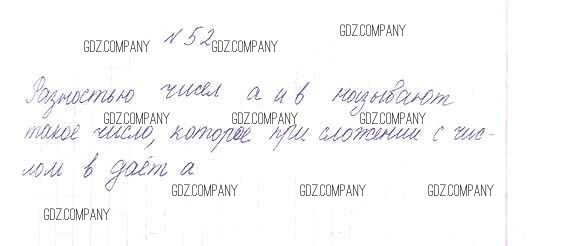 GDZ.COMPANY
№ 52
GDZ.COMPANY GDZ.COMPANY
Разностью чисел а и в называют
GDZ.COMPANY GDZ.COMPANY GDZ.COMPANY
такое число, которое при сложении с чис-
лом в даёт а
GDZ.COMPANY GDZ.COMPANY GDZ.COMPANY
GDZ.COMPANY